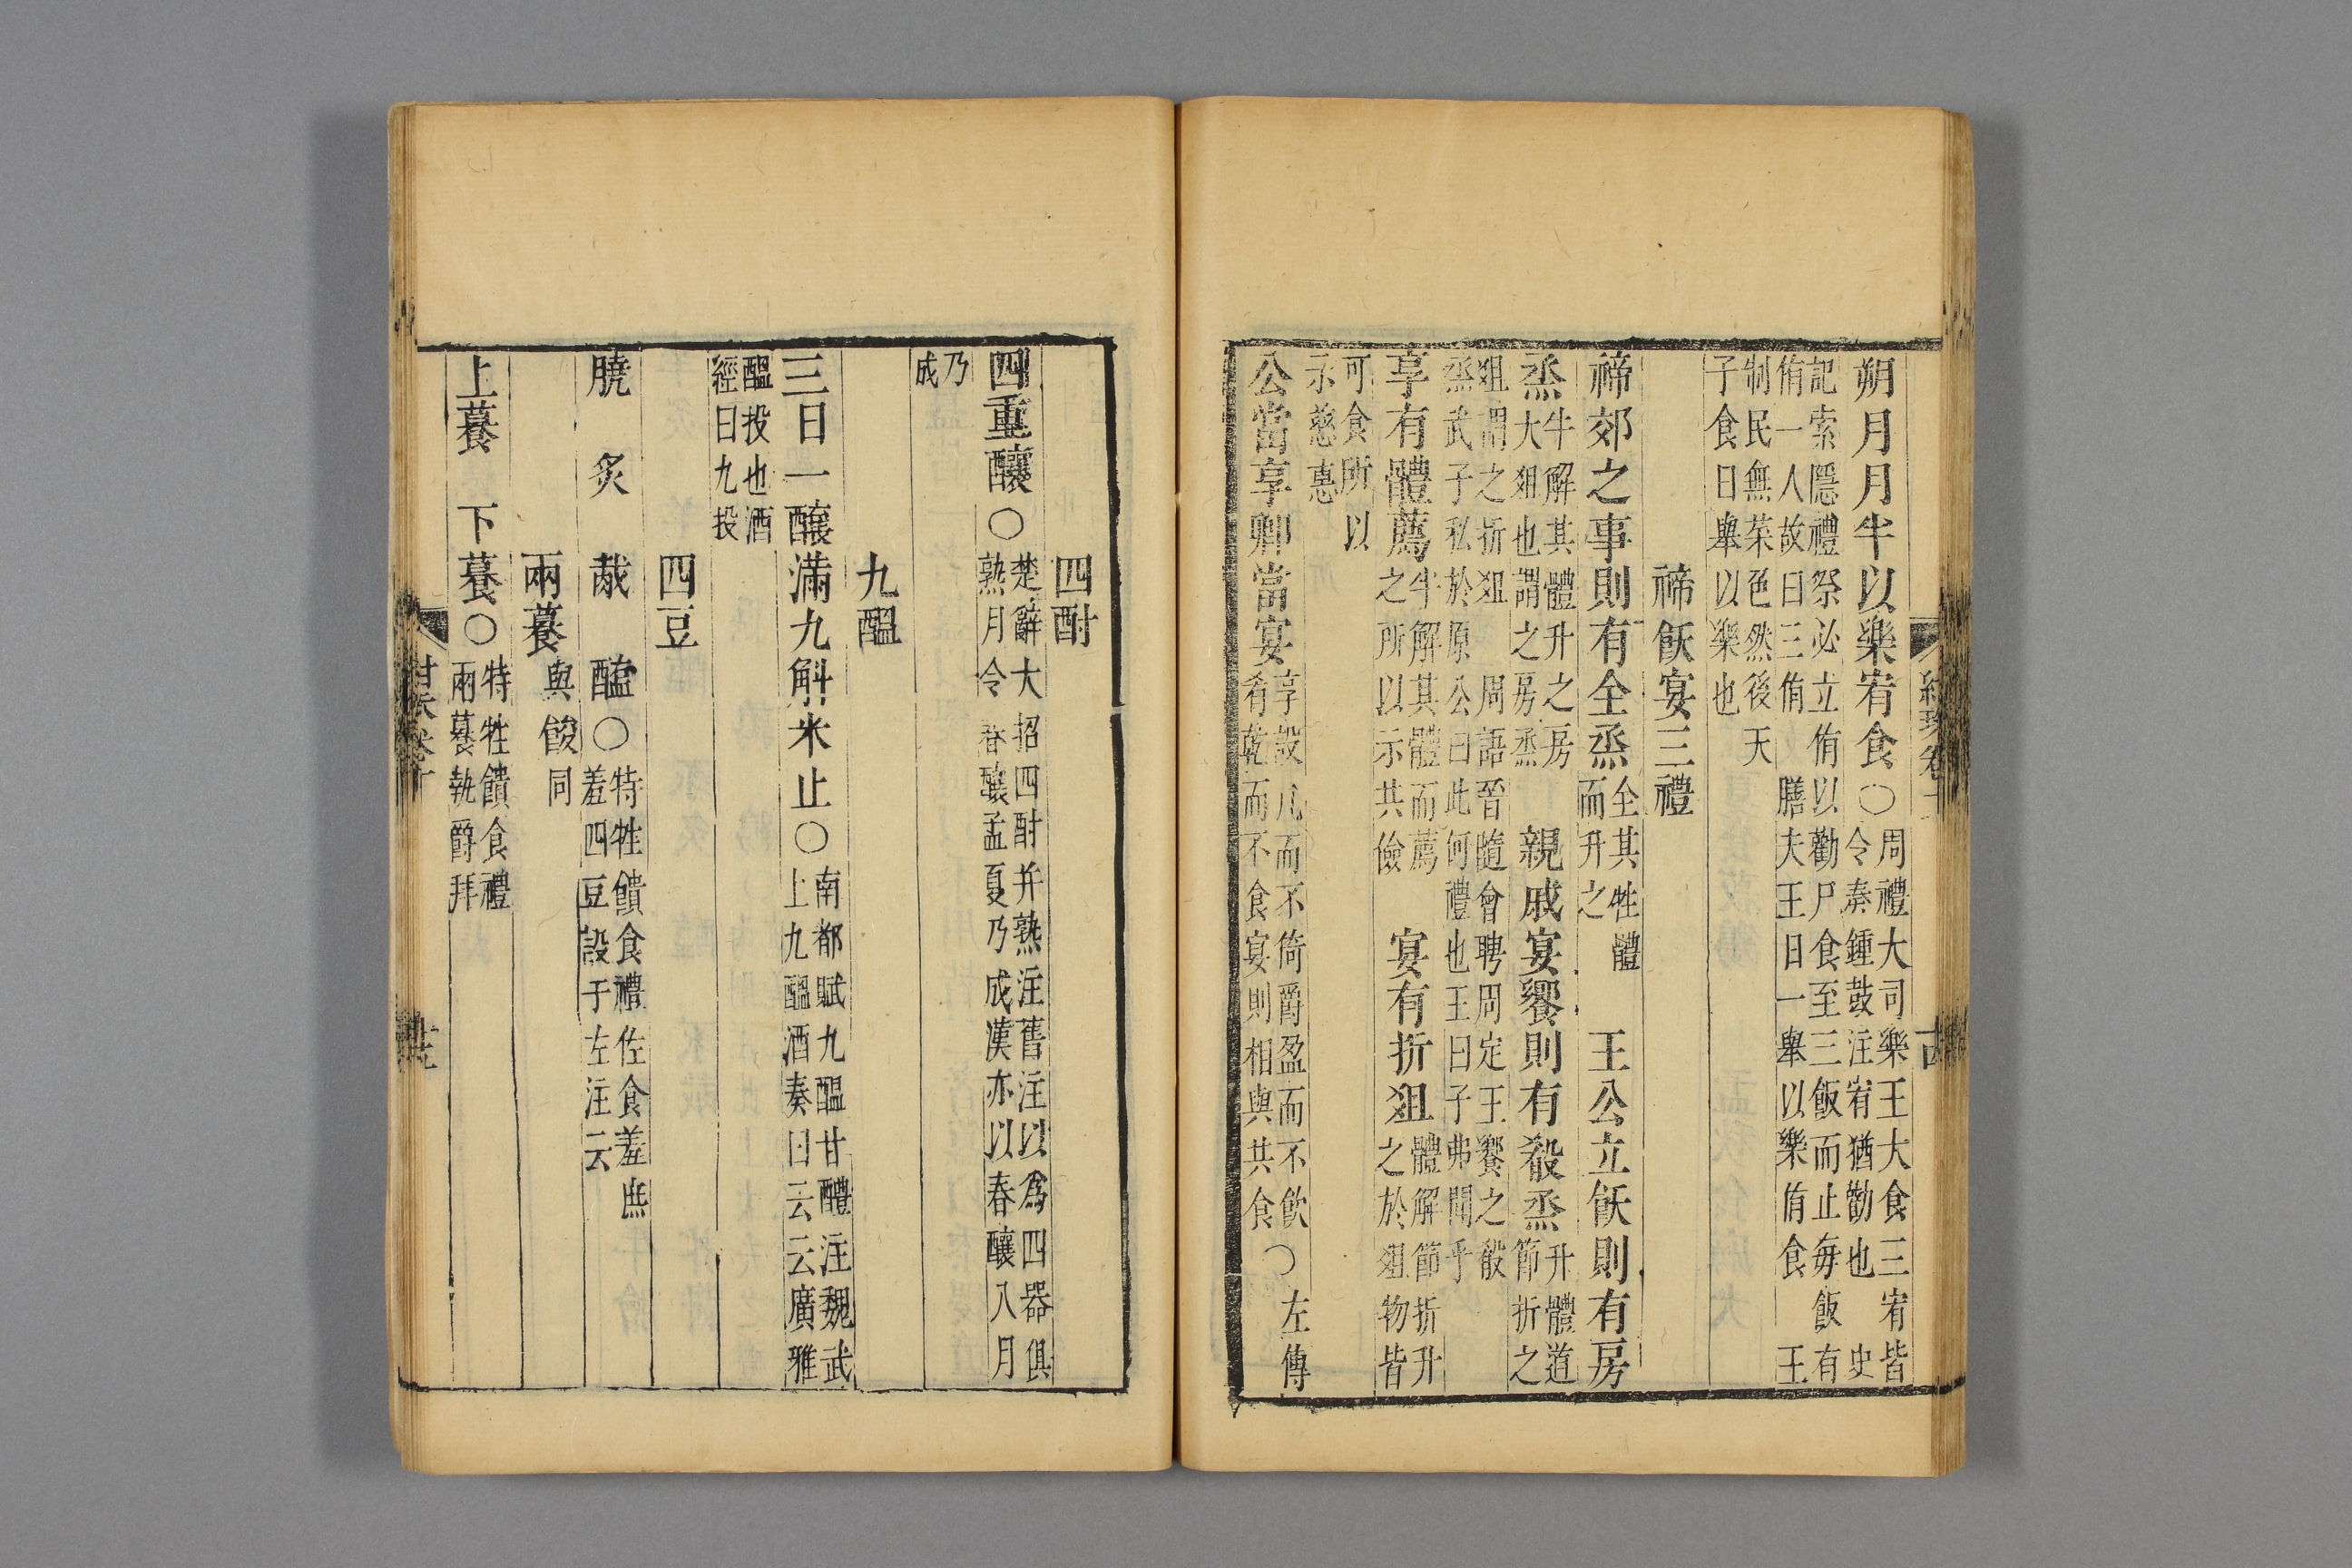 朔月月半以樂宥食〇周禮大司樂王大食三宥皆
令奏鍾鼓注宥猶勸也史
記索隱禮祭必立侑以勸尸食至三飯而止每飯有
侑一人故曰三侑膳夫王日一舉以樂侑食王
制民無菜色然後天
子食日舉以樂也
禘飫宴三禮
禘郊之事則有全烝全其牲體
而升之
王公立飫則有房
烝牛解其體升之房
大俎也謂之房烝
親戚宴饗則有殽烝升體道
節折之
俎謂之折俎周語晉隨會聘周定王饗之殽
烝武子私於原公曰此何禮也王曰子弗聞乎
享有體薦半解其體而薦
之所以示共儉
宴有折俎體解節折升
之於俎物皆
可食所以
示慈惠
公當享卿當宴享設几而不倚爵盈而不飲〇左傳
肴乾而不食宴則相與共食
四酎
四重釀〇楚辭大招四酎并熟注舊注以為四器俱
熟月令春釀孟夏乃成漢亦以春釀八月
乃
成
九醞
三日一釀滿九斛米止〇南都賦九醞甘醴注魏武
上九醞酒奏曰云云廣雅
醞投也酒
經曰九投
四豆
膮 炙 胾 醢〇特牲饋食禮佐食羞庶
羞四豆設于左注云
兩䉵與餕同
上䉵 下䉵〇特牲饋食禮
兩䉵執爵拜